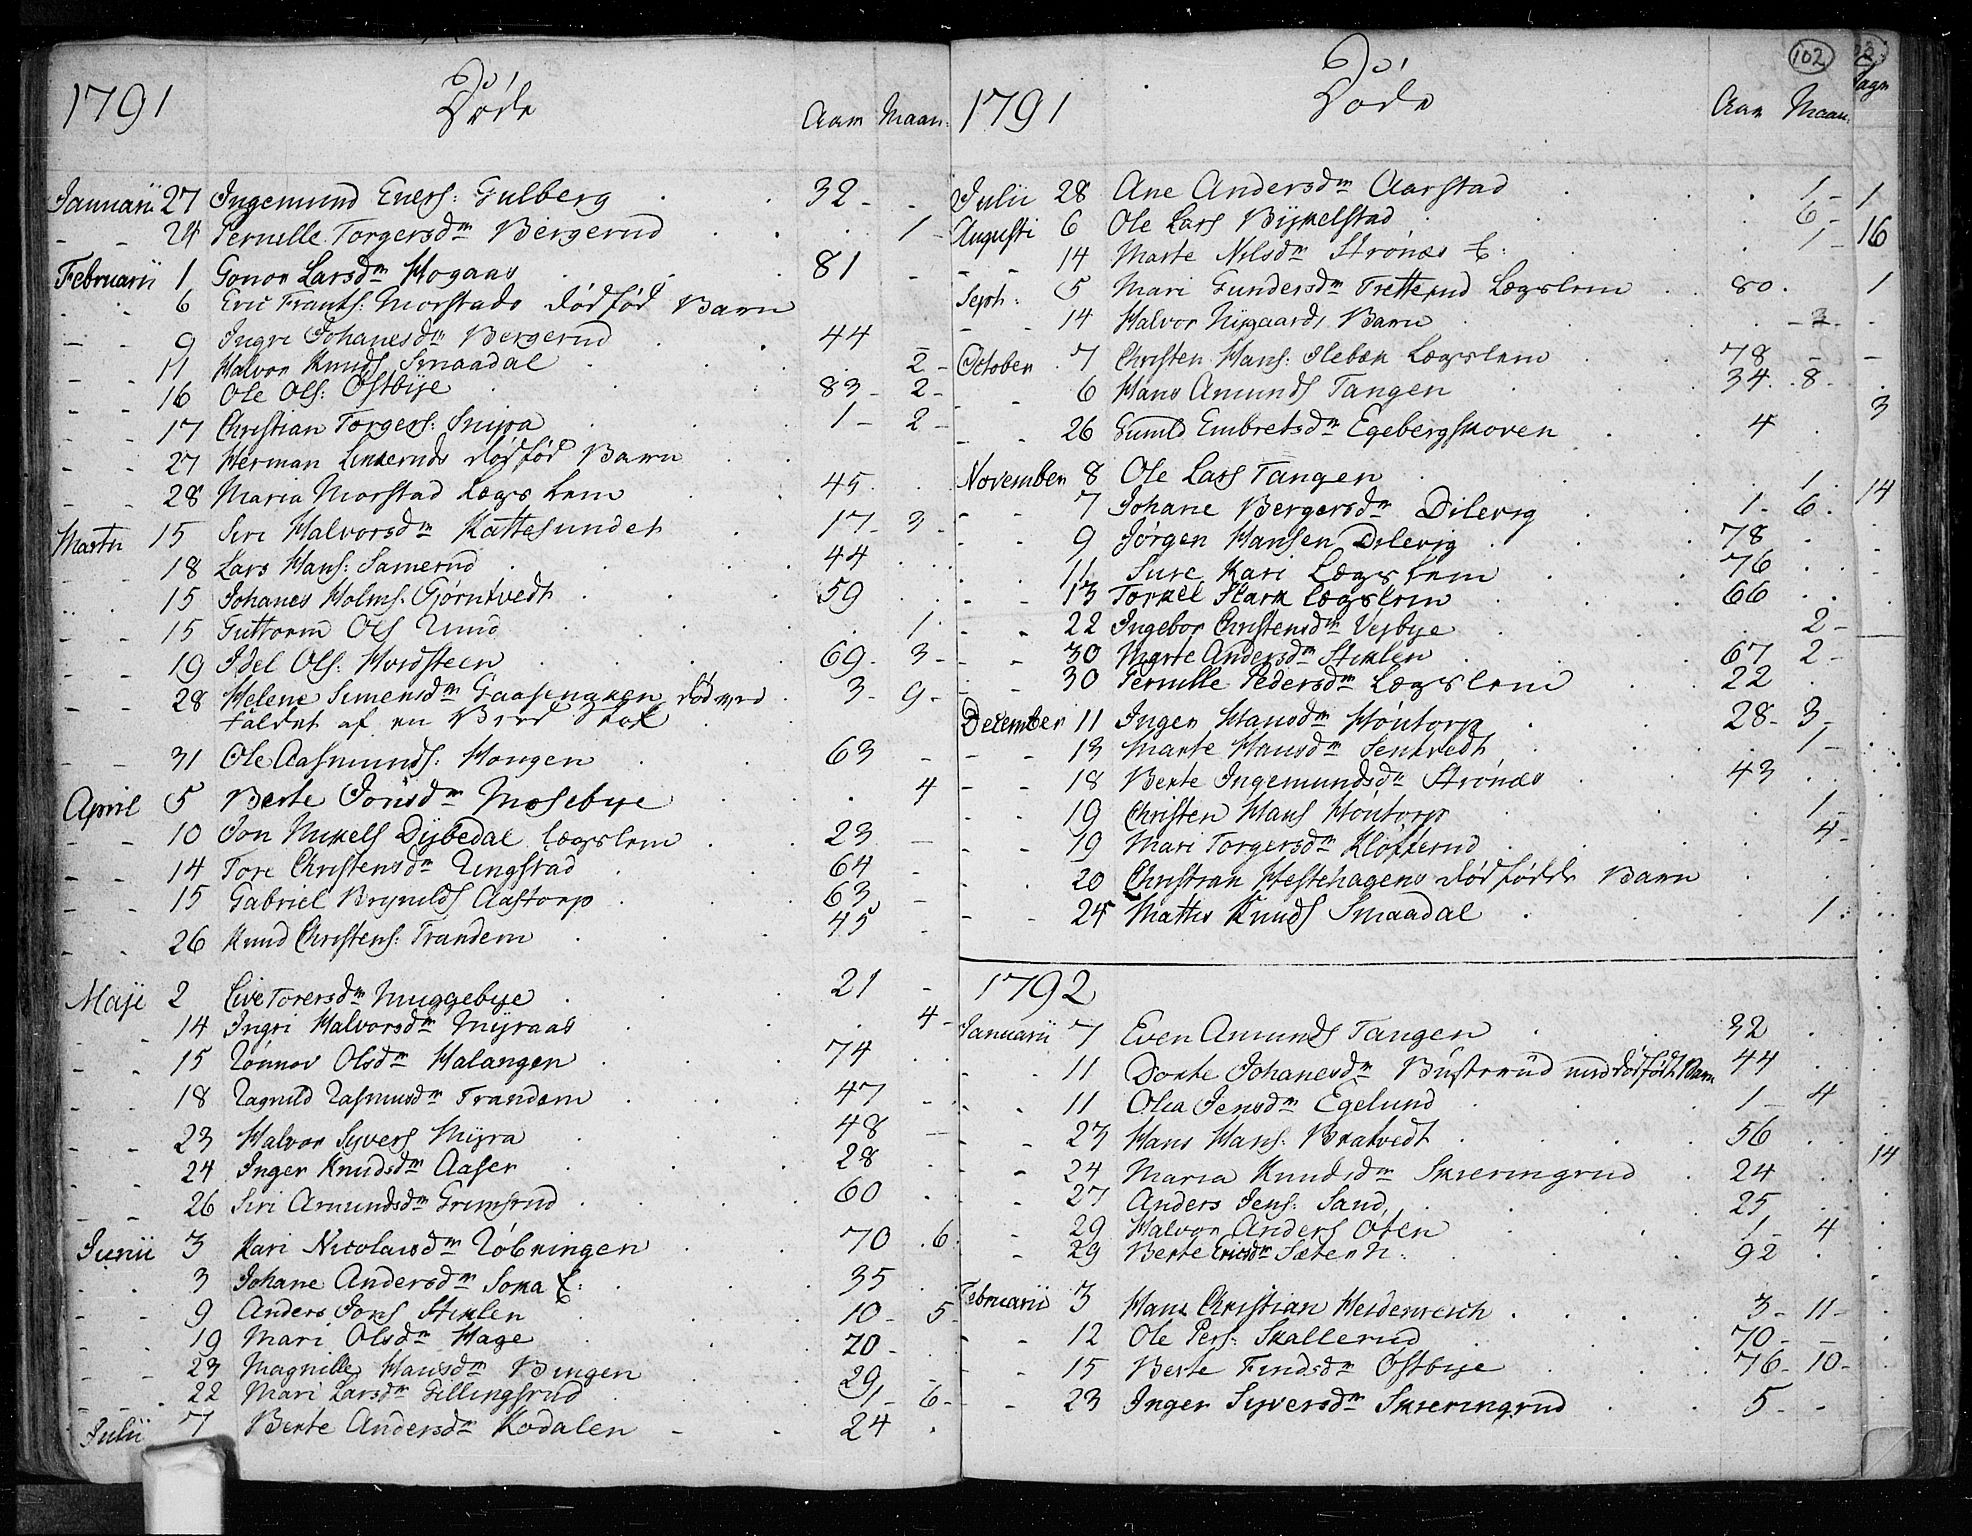 1791 Døde Aar Maan:
Januarii 27 Ingemund Evers: Gulberg 32 -
- - 24 Pernille Torgersdr Bergerud 1 -
Februarii 1 Gonor Larsdr Hogaas 81 -
6 Eric Frants: Morstads dødfød Barn
- - 9 Ingri Johanesdr Bergerud 44 -
- - 11 Halvor Knuds Smaadal 2 -
- - 16 Ole Ols: Ostbye 83 - 2 -
- - 17 Christian Torgers: Snijra 1 - 2 -
- - 27 Herman Linneruds dødfød Barn
- - 28 Maria Morstad Lægslem 45
Martii 15 Siri Halvorsdr Kattesundet 17 - 3 -
18 Lars Hans: Samerud 44
15 Johanes Holms: Gjørntvedt 59
- - 15 Guttorm Ols Ruud 1
- - 19 Idel Ols: Hvidsteen 69 - 3 -
- - 28 Helene Simensdr Gaasengxen død ved 3 - 9 -
faldet af en
- - 31 Ole Aasmunds: Hongen 63 -
April 5 Berte Jonsdr Mosebye 4
- - 10 Jon Mikels Dybedal Lægslem 23 -
- - 14 Tore Christensdr Ringstad 64 -
- - 15 Gabriel Brynilds Aastorp 63 -
- - 26 Knud Christens: Trandem 45 -
Maji 2 Live Torersdr Muggebye 21 -
- - 14 Ingri Halvorsdr Myraas 4 -
- - 15 Rønnov Olsdr Halangen 74
- - 18 Ragnild Rasmusdr Trandem 47 -
- - 23 Halvor Syvers Myra 48 -
- - 24 Inger Knudsdr Aaser 28
- - 26 Siri Amundsdr Grimsrud 60
Junii 3 Kari Nicolaisdr Røbningen 70 . 6
3 Johane Andersdr Sona E: 35
- - 9 Anders Jons Stiklen 10 - 5 -
- - 19 Mari Olsdr Hage 20 -
- - 23 Magnille Hansdr Bingen 29 -
- - 22 Mari Larsdr Gillingsrud 1 - 6 -
Julii 7 Berte Andersdr Kodalen 24
102
1791 Døde Aar Maan: Dage
Julii 28 Ane Andersdr Aarstad 1 - 1
Augusti 6 Ole Lars Bykelstad 6 -
- - 14 Marte Nilsdr Strønes E: 1 - 16
Septr: 5 Mari Gundersdr Tretterud Lægslem 80 . 1
- - 14 Halvor Nygaards Barn - 3 -
October 7 Christen Hans: Slebæk Lægslem 78 - -
- - 6 Hans Amunds Tangen 34 . 8 -
- - 26 Gunild Embretsdr Egebergskoven 4 3
November 8 Ole Lars Tangen 1 14
- - 7 Johane Bergersdr Dilevig 1 - 6
- - 9 Jørgen Hansen Dilevig 78
11 Sure Kari Lægslem 76
- - 13 Torkel Stark Lægslem 66
- - 22 Ingebor Christensdr Vejbye 2 -
- - 30 Marte Andersdr Stiklen 67 2 -
- - 30 Pernille Pedersdr Lægslem 22
December 11 Inger Hansdr Høntorp 28 - 3 -
- - 13 Marte Hansdr Sentvedt 1 -
- - 18 Berte Ingemundsdr Strønes 43
- - 19 Christen Hans Høntorp 1 -
- - 19 Mari Torgersdr Kløfterud 4 -
20 Christian Hestehagens dødfødde Barn
- - 24 Mattis Knuds Smaadal 1
1792
Januarii 7 Even Amunds Tangen 32
- - 11 Dorte Johanesdr Bustrud med dødfødt Barn 44
- - 11 Olea Jensdr Egelund 1 - 4
- - 23 Hans Hans: Bratvedt 56
- - 24 Maria Knudsdr Skieringrud 24 14
- - 27 Anders Jens: Sand 25
- - 29 Halvor Anders Oten 1 - 4
- - 29 Berte Ericsdr Sæter N: 92
Februarii 3 Hans Christian Heidenreich 3 - 11 -
- - 12 Ole Pers: Skallerud 70 - -
- - 15 Berte Findsdr Ostbye 76 - 10 -
- - 23 Inger Syversdr Skieringrud 5 - -